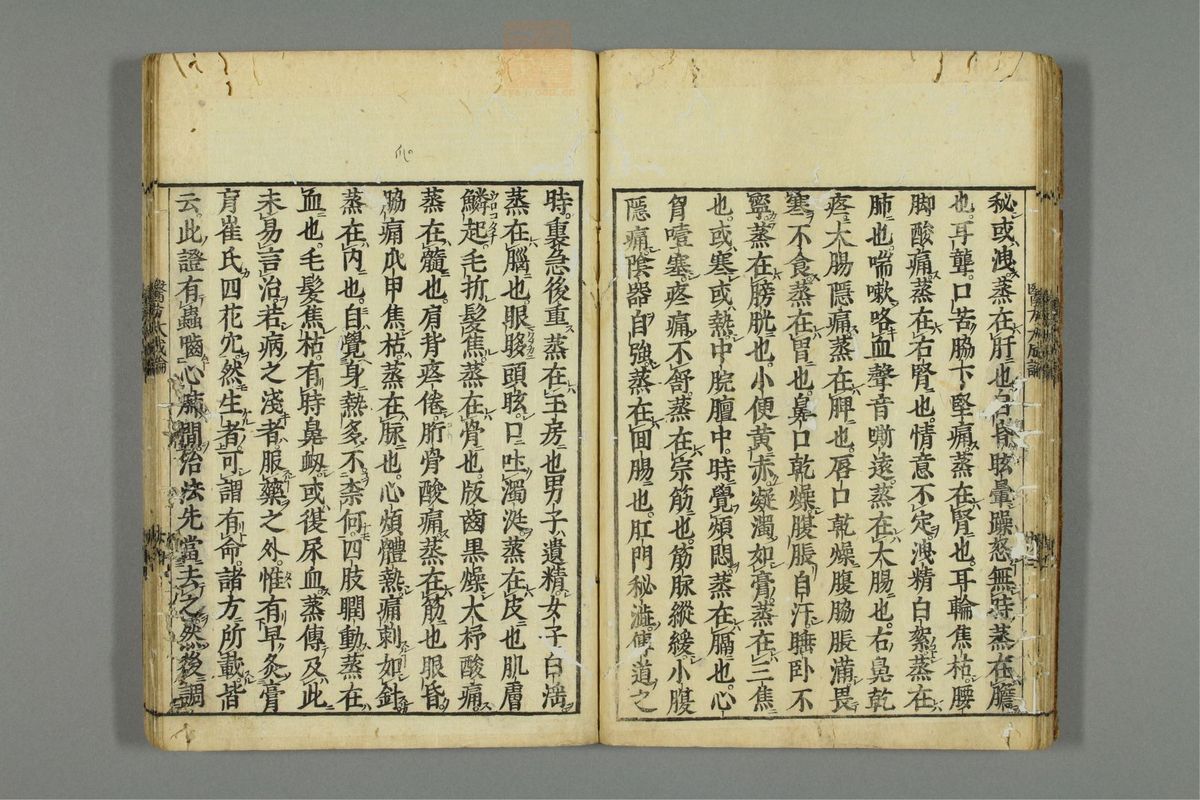 秘或洩蒸在肝也昏眩暈躁怒無時蒸在膽
也耳聾口苦脇下堅痛蒸在腎也耳輪焦枯腰
脚酸痛蒸在右腎也情意不定洩精白絮蒸在
肺也喘嗽咯血聲音嘶遠蒸在大腸也右鼻乾
疼大腸隱痛蒸在脾也唇口乾燥腹脇脹滿畏
寒不食蒸在胃也鼻口乾燥腹脹自汗睡卧不
寧蒸在膀胱也小便黄赤凝濁如膏蒸在三焦
也或寒或熱中脘膻中時覺煩悶蒸在膈也心
胷噎塞疼痛不舒蒸在宗筋也筋脉縱緩小腹
隱痛陰器自強蒸在回腸也肛門秘澁傳道之
時裏急後重蒸在玉房也男子遺精女子白淫
蒸在腦也眼眵頭眩口吐濁涎蒸在皮也肌膚
鱗起毛折髮焦蒸在骨也版齒黒燥大杼酸痛
蒸在髓也肩背疼倦胻骨酸痛蒸在筋也眼昏
脇痛爪甲焦枯蒸在脉也心煩體熱痛刺如針
蒸在内也自覺身熱多不柰何四肢瞤動蒸在
血也毛髮焦枯有時鼻衂或復尿血蒸傳及此
未易言治若病之淺者服藥之外惟有早灸膏
肓崔氏四花穴然生者可謂有命諸方所載皆
云此證有蟲嚙心肺間治法先當去之然後調